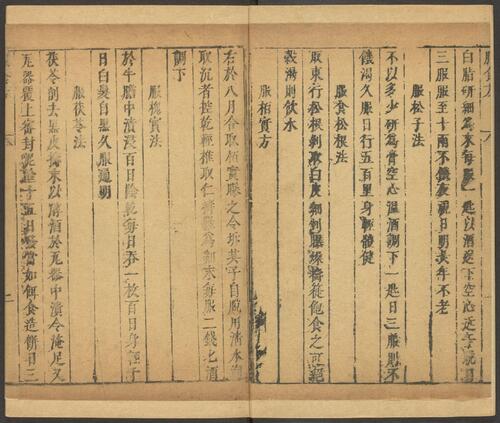 白脂研細為末每服一匙以酒送下空心近午晚日
三服服至十兩不饑夜視目明長年不老
服松子法
不以多少研為膏空心温酒調下一匙日三服則不
饑渴久服日行五百里身輕體健
服食松根法
取東行松根剥取白皮細剉曝燥擣篩飽食之可絕
榖渴則飲水
服栢實方
右於八月合取栢實曝之令坼其子自脱用清水淘
取沉者控乾輕椎取仁擣羅為細末每服二錢匕酒
調下
服槐實法
於牛膽中漬浸百日陰乾每日吞一枚百日身輕千
日白髮自黑久服通明
服茯苓法
茯苓削去黑皮擣末以醇酒於瓦器中漬令淹足又
瓦器覆上密封泥塗十五日發當如餌食造餅日三